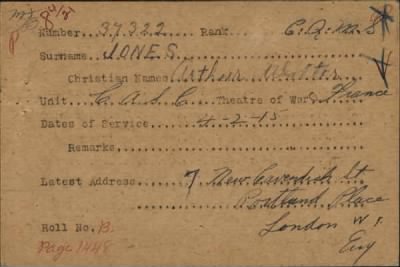 8 4/21
Number 37322 Rank C.Q.M.S
Surname JONES
Christian Names Arthur Walter
Unit C.A.S.C. Theatre of War France
Dates of Service 4-2-15
Remarks
Latest Address 7 New Cavendish St
Portland Place
London W.1.
Eng
Roll No. B.
Page 1448